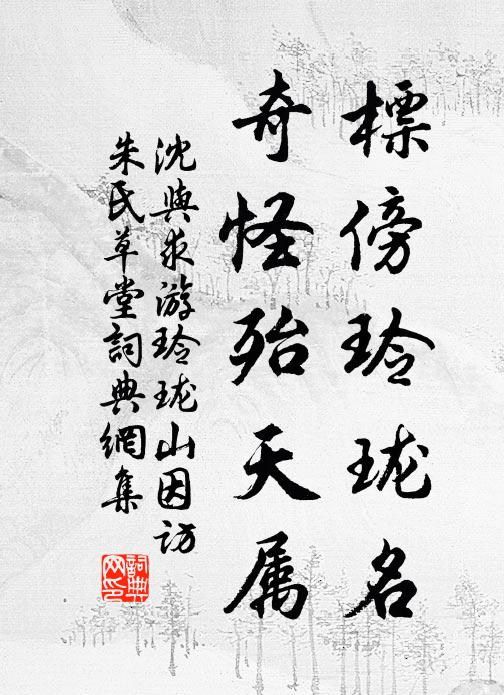 標傍玲珑名
奇怪殆天属
沈與求游玲珑山因访
朱氏草堂詞典網集
詞典网印